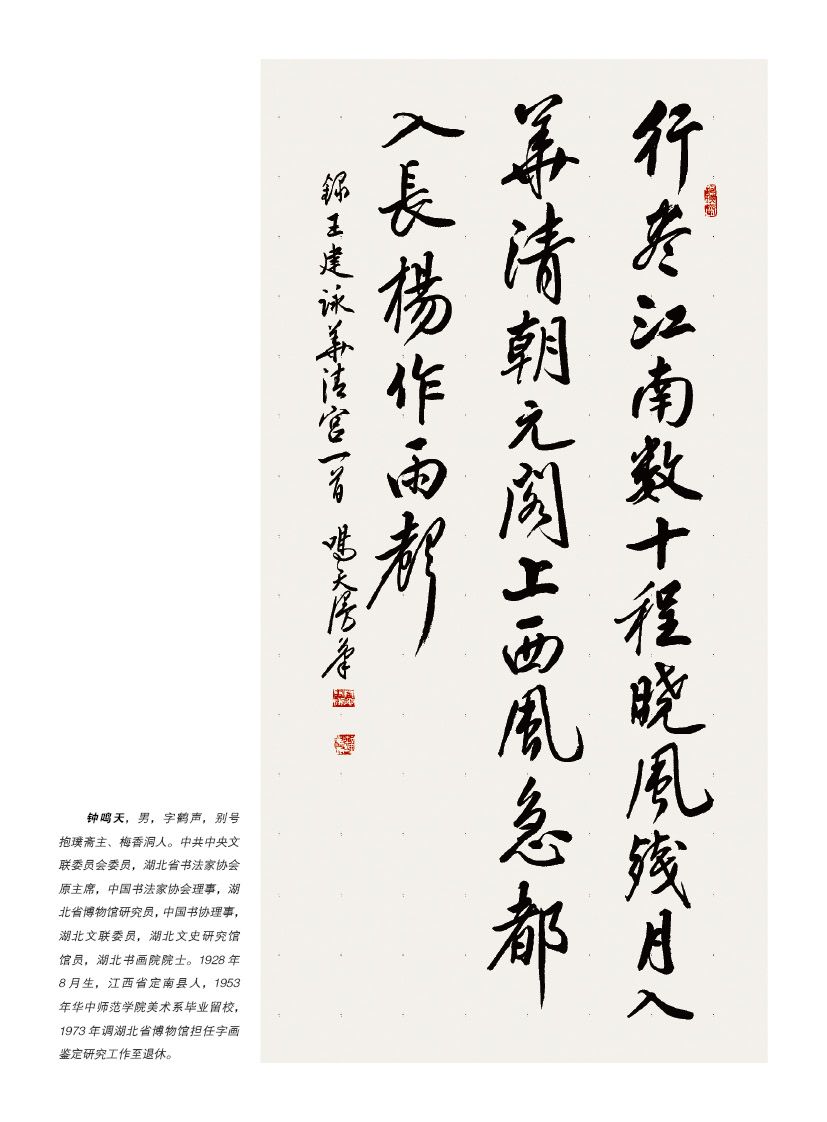 行盡江南数十程晓風残月入
華清朝元阁上西風急都
入長楊作雨聲
録王建詠華清宮一首 鳴天漫筆
钟鸣天，男，字鹤声，别号
抱璞斋主、梅香洞人。中共中央文
联委员会委员，湖北省书法家协会
原主席，中国书法家协会理事，湖
北省博物馆研究员，中国书协理事，
湖北文联委员，湖北文史研究馆
馆员，湖北书画院院士。1928 年
8 月生，江西省定南县人，1953
年华中师范学院美术系毕业留校，
1973 年调湖北省博物馆担任字画
鉴定研究工作至退休。